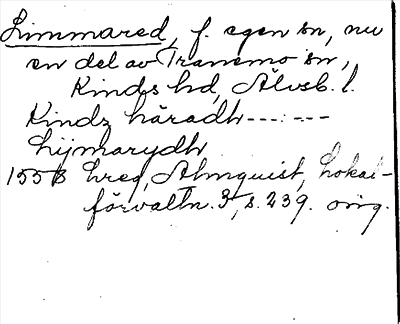 Limmared, f. egen sn, nu
en del av Tranemo sn,
Kinds hd, Älvsb. l.
Kindz häradh ---:---
Lijmarydh
1558 hreg, Almquist, Lokal-
förvaltn. 3, s. 239. orig.